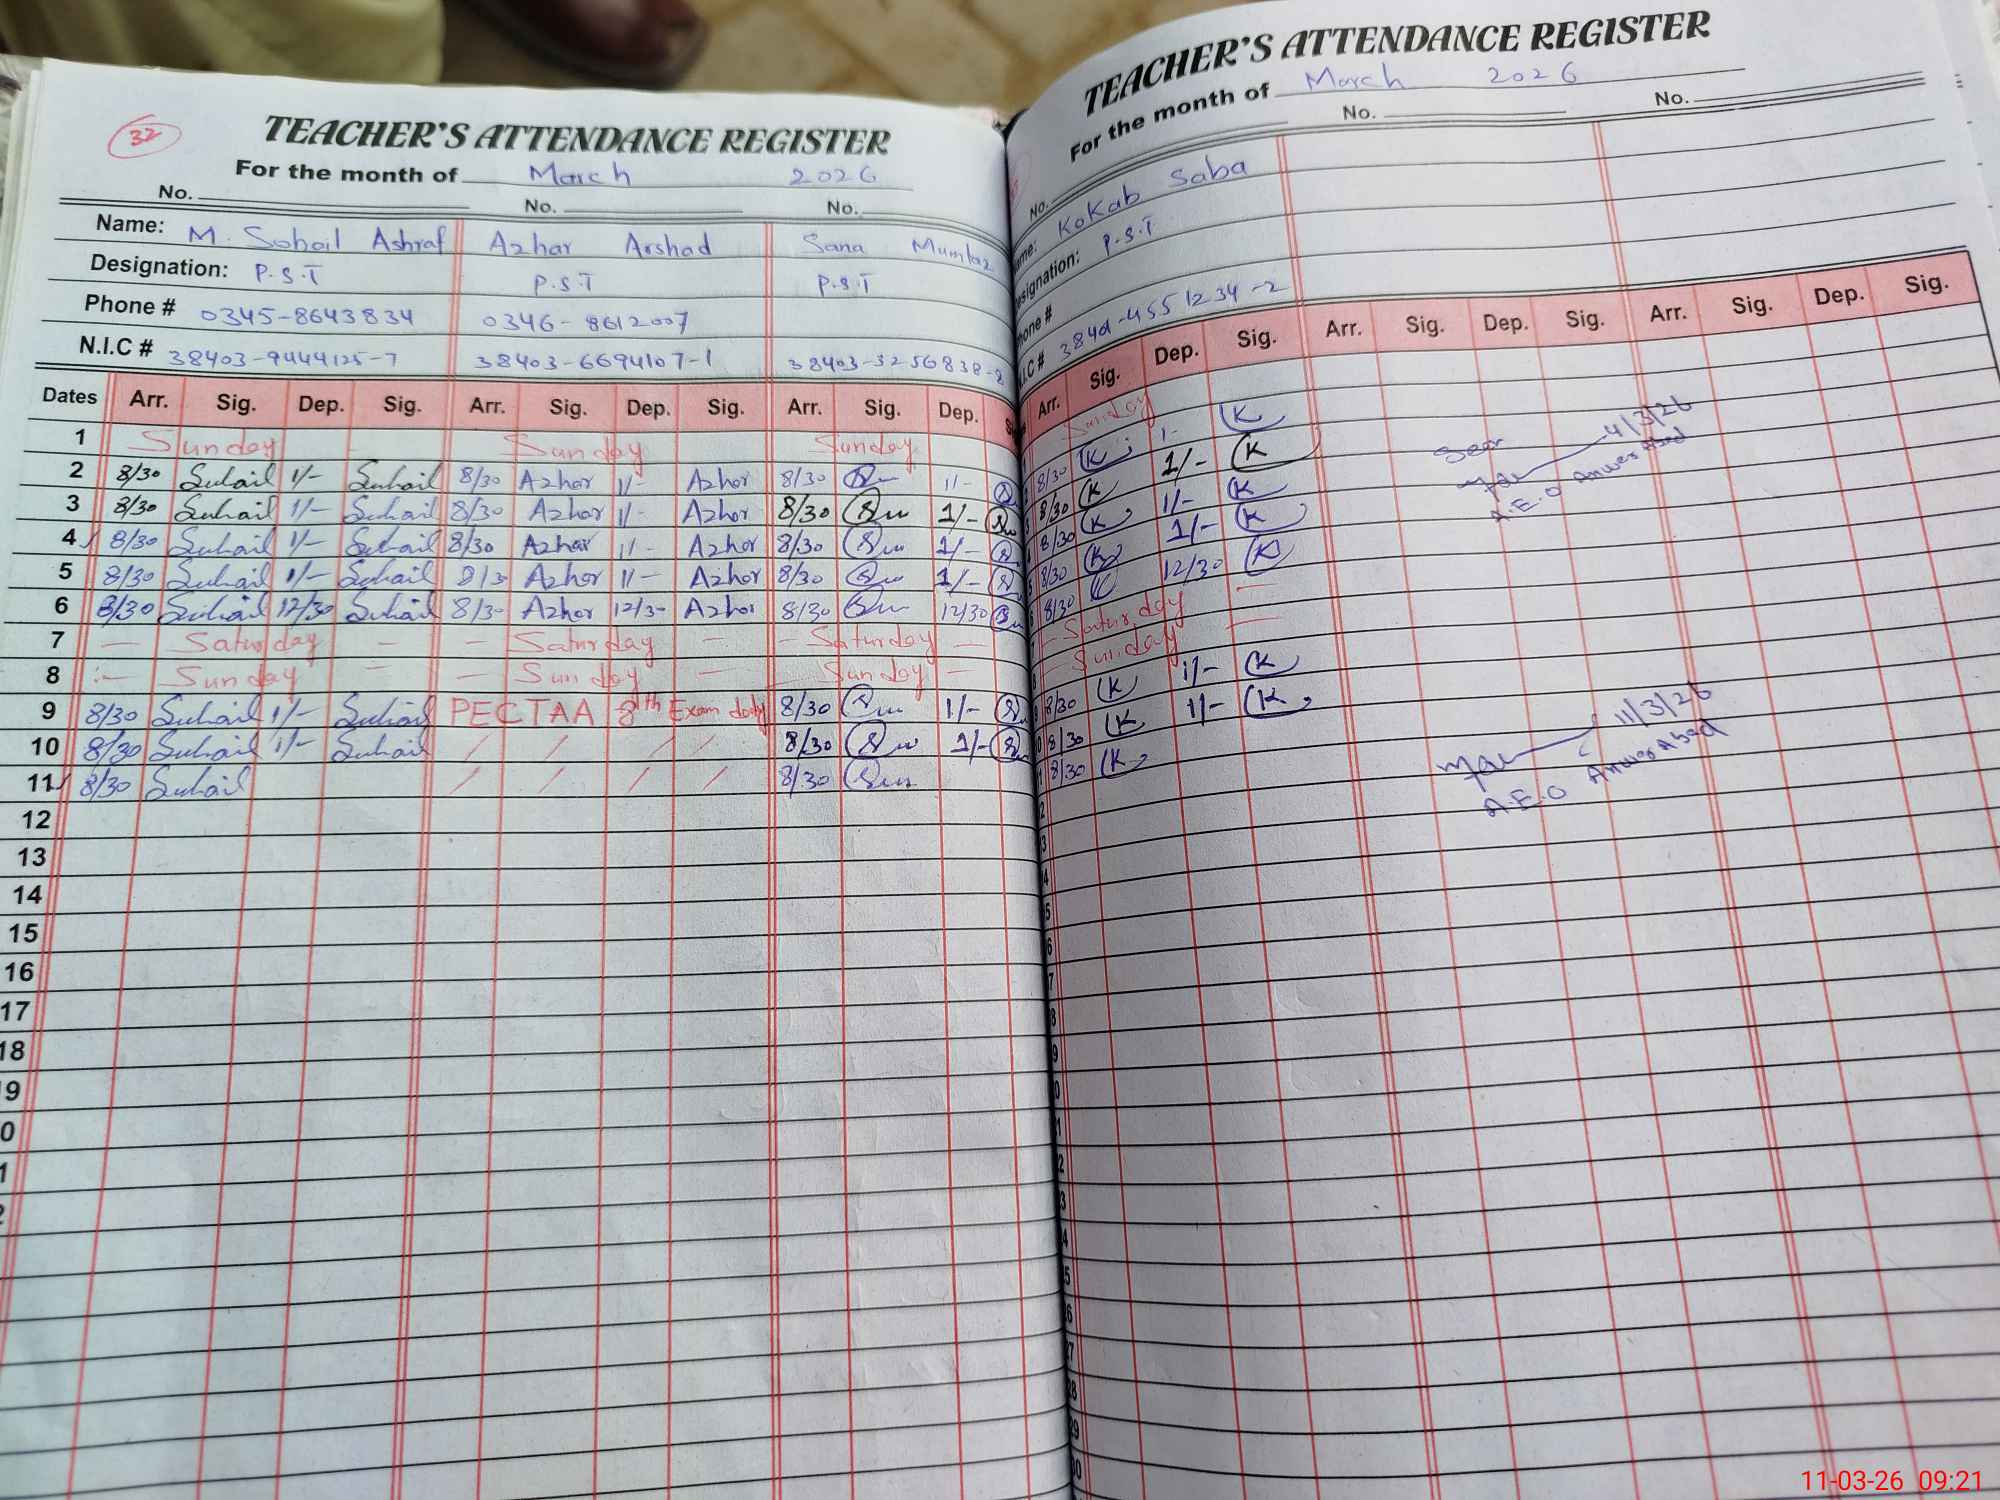 32
TEACHER'S ATTENDANCE REGISTER
For the month of March 2026
No. No. No.
Name: M. Sohail Ashraf Azhar Arshad Sana Mumtaz
Designation: P.S.T P.S.T P.S.T
Phone # 0345-8643834 0346-8612007
N.I.C # 38403-9444125-7 38403-6694107-1 38403-3256838-8
Dates Arr. Sig. Dep. Sig. Arr. Sig. Dep. Sig. Arr. Sig. Dep.
1 Sunday Sunday Sunday
2 8/30 Suhail 1/- Suhail 8/30 Azhar 1/- Azhar 8/30 1/-
3 8/30 Suhail 1/- Suhail 8/30 Azhar 1/- Azhar 8/30 1/-
4 8/30 Suhail 1/- Suhail 8/30 Azhar 1/- Azhar 8/30 1/-
5 8/30 Suhail 1/- Suhail 8/3 Azhar 1/- Azhar 8/30 1/-
6 8/30 Suhail 12/30 Suhail 8/3- Azhar 12/3- Azhar 8/30 12/30
7 - Saturday - - Saturday - - Saturday -
8 - Sunday - - Sunday - Sunday -
9 8/30 Suhail 1/- Suhail PECTAA 8th Exam duty 8/30 1/-
10 8/30 Suhail 1/- Suhail / / / / 8/30 1/-
11 8/30 Suhail / / / / 8/30
12
13
14
15
16
17
18
19
TEACHER'S ATTENDANCE REGISTER
For the month of March 2026
No. No. No.
Kokab Saba
P.S.T
Arr. Sig. Dep. Sig. Arr. Sig. Dep. Sig. Arr. Sig. Dep. Sig.
Sunday
8/30 K 1- K
8/30 K 1/- K
8/30 K 1/- K
8/30 K 1/- K
8/30 K 12/30 K
- Saturday -
- Sunday -
8/30 K 1/- K
8/30 K 1/- K
8/30 K
Seen
4/3/26
A.E.O Anwer Abad
11/3/26
A.E.O Anwer Abad
11-03-26 09:21